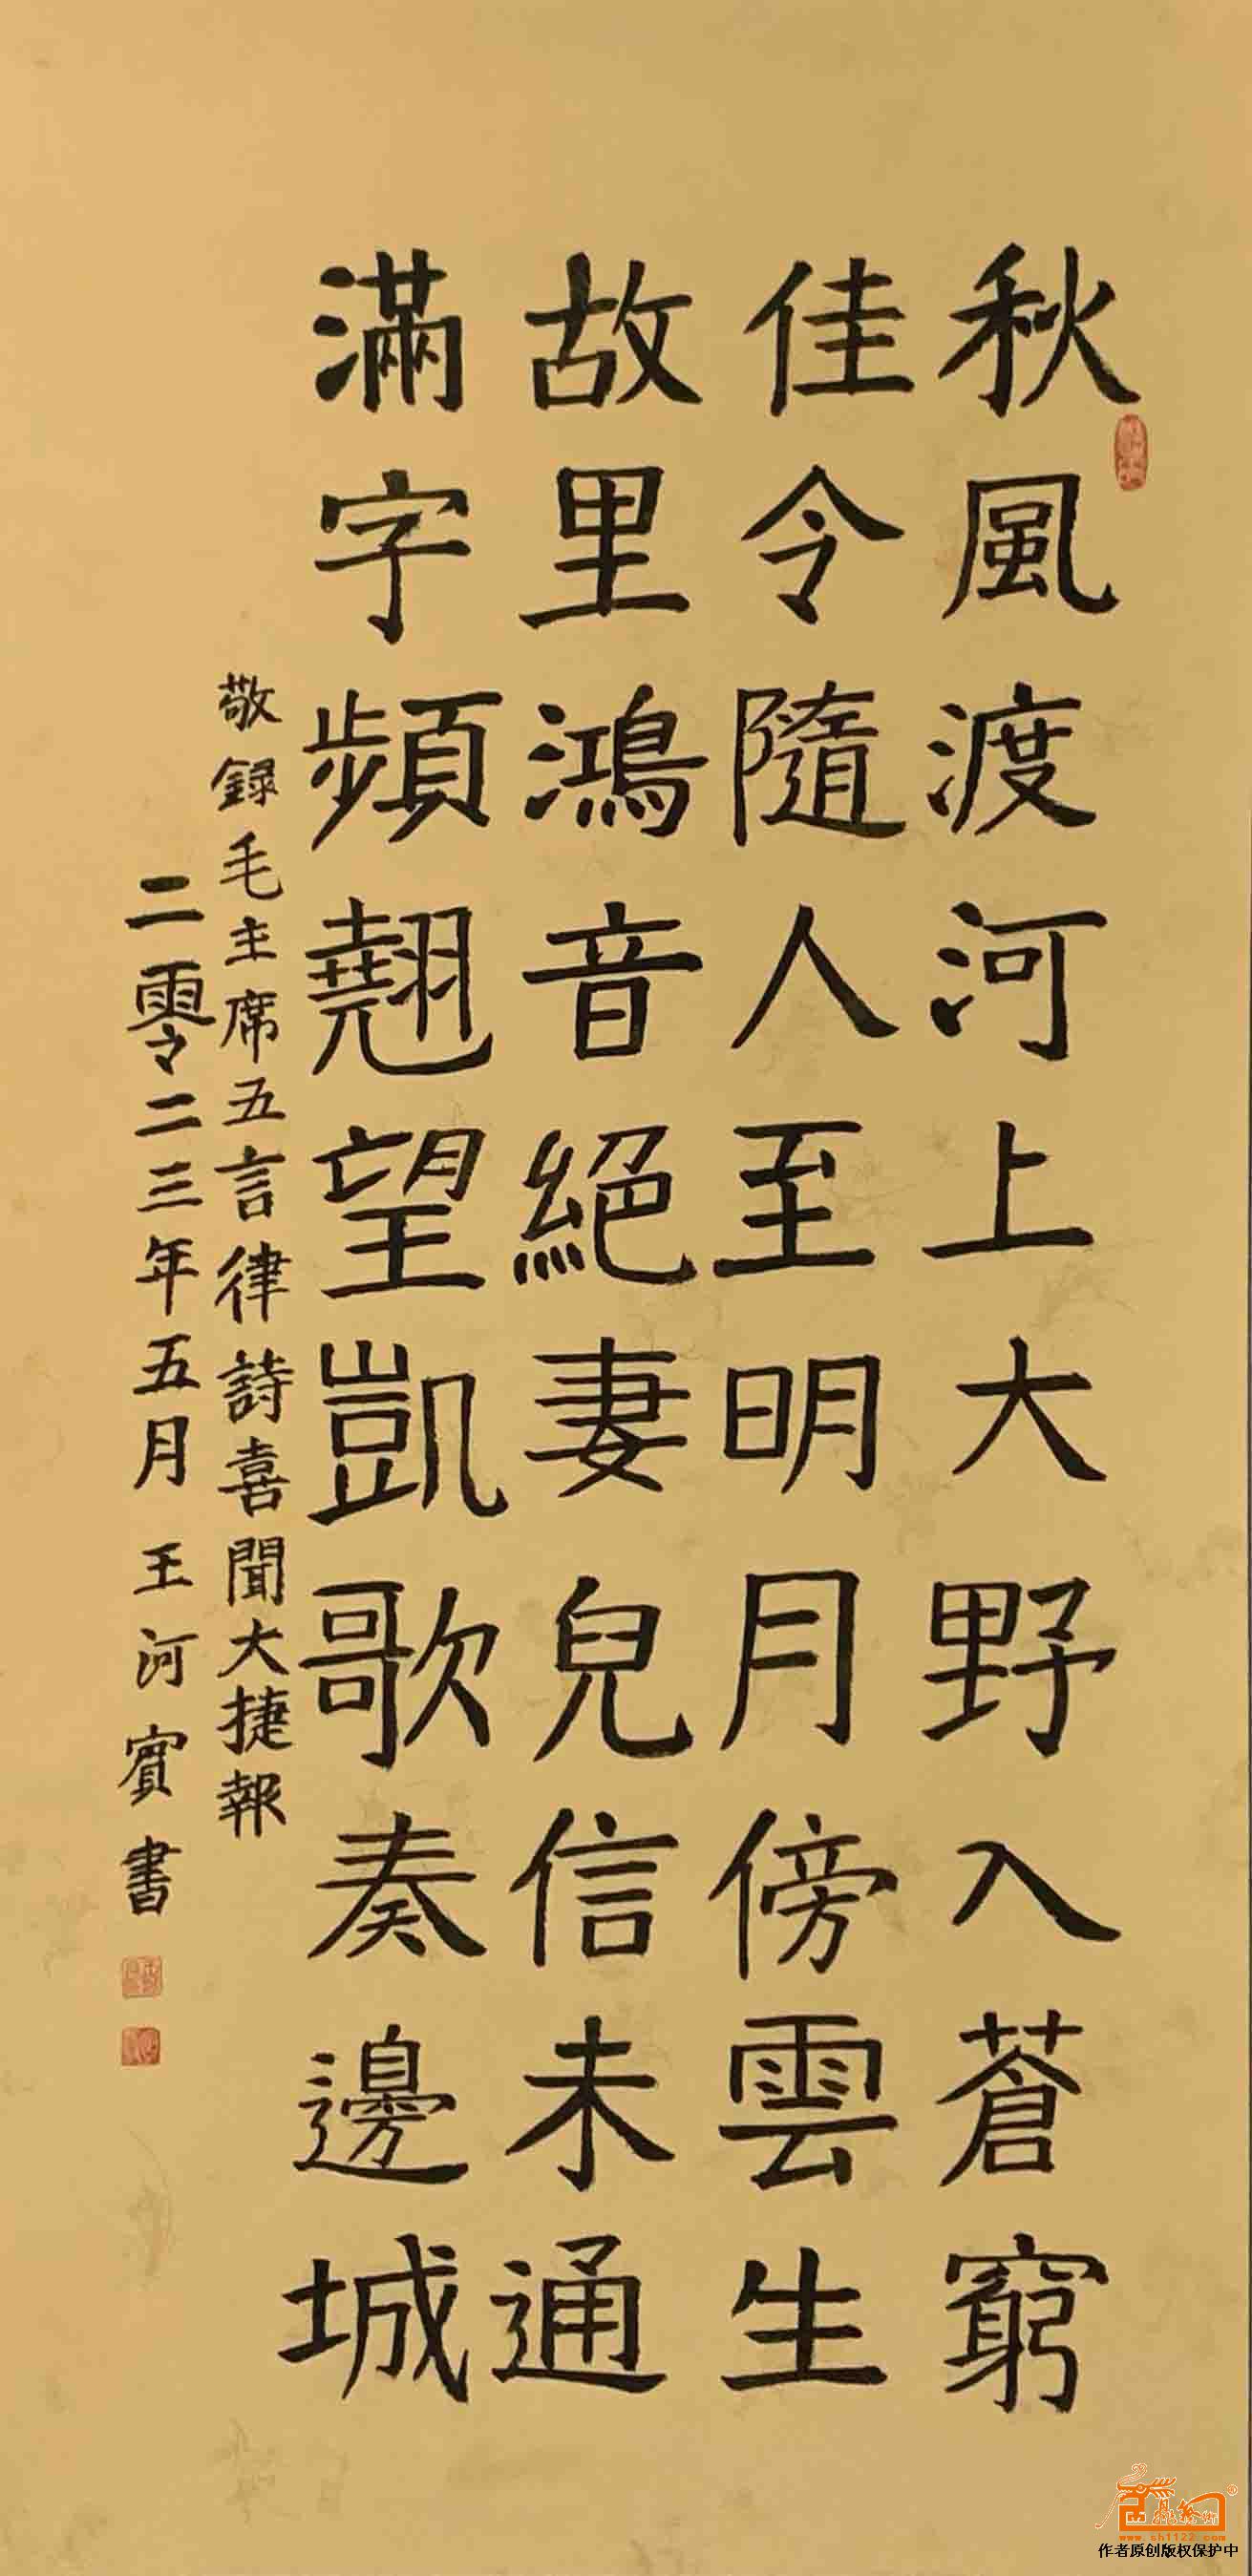 秋風渡河上大野入蒼窮
佳令隨人至明月傍雲生
故里鴻音絕妻兒信未通
滿字頻翹望凱歌奏邊城
敬録毛主席五言律詩喜聞大捷報
二零二三年五月 王河賓書
www.sh1122.com
作者原创版权保护中